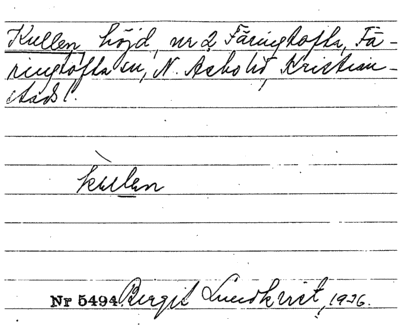 Kullen, höjd, nr 2 Färingtofta, Fä-
ringtofta sn, N. Åsbo hd, Kristian-
stads l.
kullen
Nr 5494 Birgit Lundkvist, 1926.